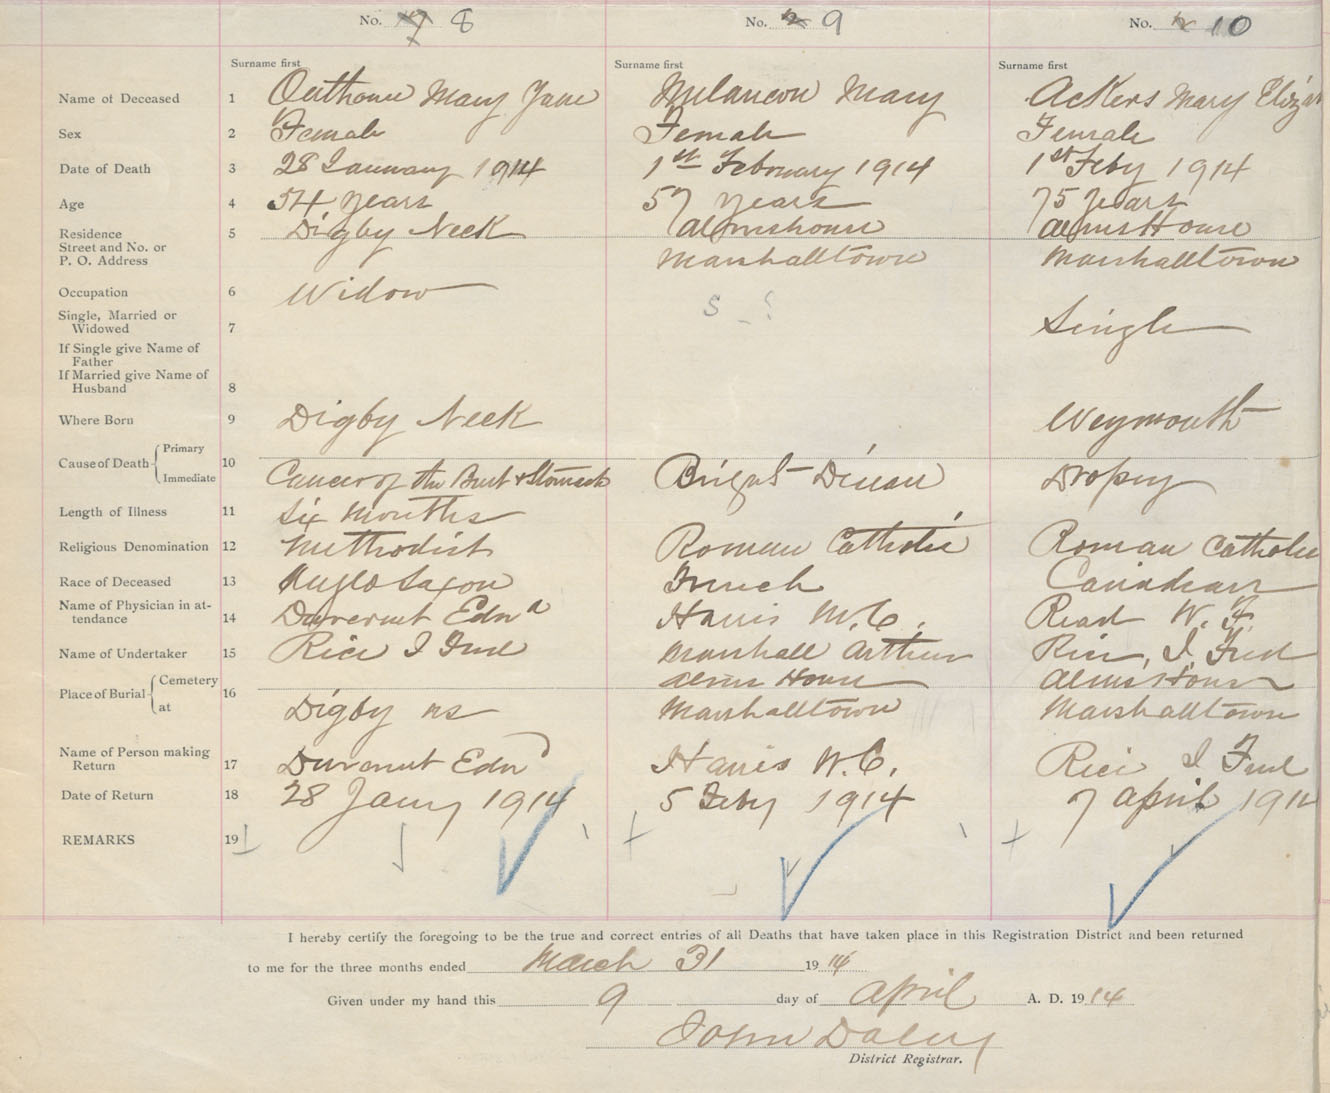 No. 8
No. 9
No. 10
Surname first
Surname first
Surname first
Name of Deceased 1 Outhouse Mary Jane Melancon Mary Ackers Mary Eliza
Sex 2 Female Female Female
Date of Death 3 28 January 1914 1st February 1914 1st Feby 1914
Age 4 54 years 57 years 75 years
Residence 5 Digby Neck Almshouse Alms House
Street and No. or
P. O. Address Marshalltown Marshalltown
Occupation 6 Widow
S - ?
Single, Married or
Widowed 7 Single
If Single give Name of
Father
If Married give Name of
Husband 8
Where Born 9 Digby Neck Weymouth
Cause of Death Primary 10
Immediate Cancer of the & Stomach Dropsy
Length of Illness 11 Six Months
Religious Denomination 12 Methodist Roman Catholic Roman Catholic
Race of Deceased 13 Anglo Saxon French Canadian
Name of Physician in at-
tendance 14 Edw Harris W. C. Read W. F.
Name of Undertaker 15 Rice I Fred Marshall Arthur Rice, I. Fred
Place of Burial Cemetery 16 Alms House Alms House
at Digby NS Marshalltown Marshalltown
Name of Person making
Return 17 Edw Harris W. C. Rice I Fred
Date of Return 18 28 Jany 1914 5 Feby 1914 7 April 191
REMARKS 19
I hereby certify the foregoing to be the true and correct entries of all Deaths that have taken place in this Registration District and been returned
to me for the three months ended March 31 1914
Given under my hand this 9 day of April A. D. 1914
John Daley
District Registrar.